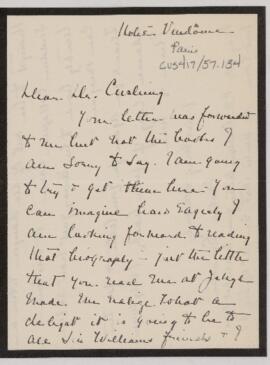 Hotel Vendôme
Paris
CUS417/57.134
Dear Dr. Cushing
Your letter was forwarded
to me but not the books I
am sorry to say. I am going
to try & get them here. You
can imagine how eagerly I
am looking forward to reading
that biography – just the little
that you read me at
made me realize what a
delight it is going to be to
all Sir Williams friends & I